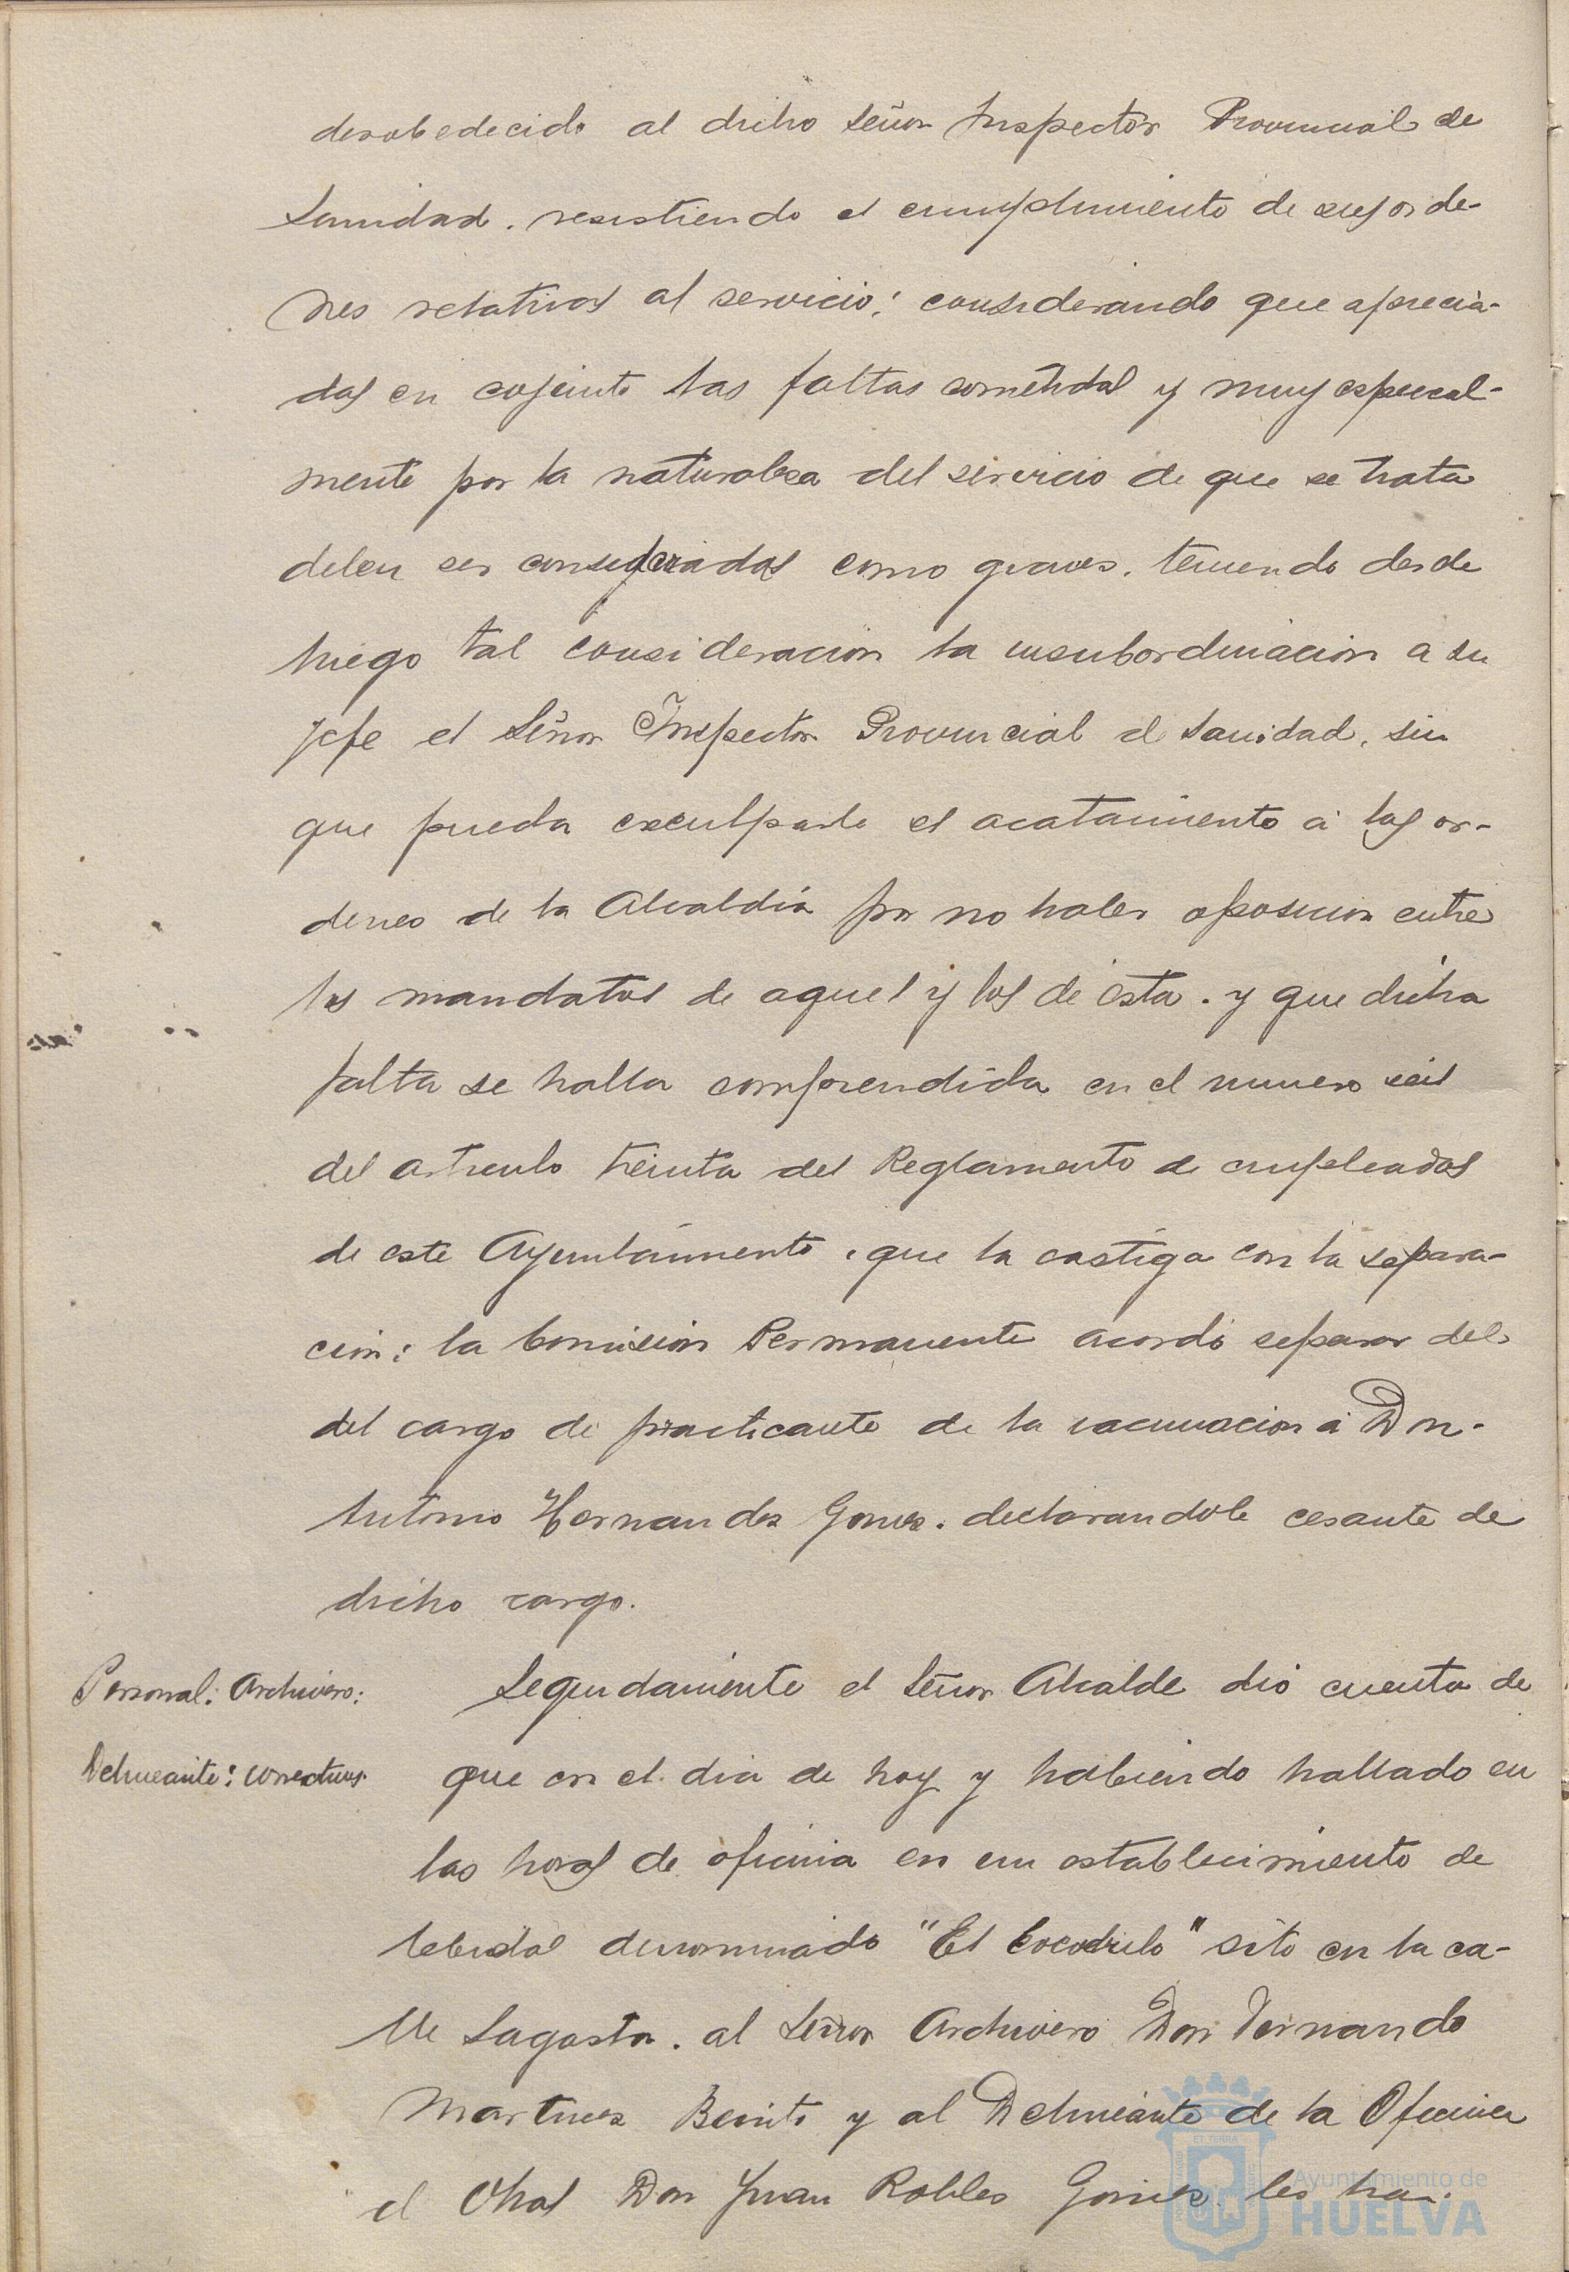 desobedecido al dicho Señor Inspector Provincial de
Sanidad. resistiendo el cumplimiento de sus orde-
nes relativas al servicio; considerando que aprecia-
das en cojunto las faltas cometidas y muy especial-
mente por la naturaleza del servicio de que se trata
deben ser consideradas como graves. teniendo desde
luego tal consideracion la insubordinacion a su
jefe el Señor Inspector Provincial de Sanidad, sin
que pueda exculparle el acatamiento a las or-
denes de la Alcaldía por no haber oposicion entre
los mandatos de aquel y los de ésta. y que dicha
falta se halla comprendida en el numero seis
del articulo treinta del Reglamento de empleados
de este Ayuntamiento, que la castiga con la separa-
cion: la Comision Permanente acordó separar del
del cargo de practicante de la vacunacion a Don-
Antonio Hernandez Gomez. declarandole cesante de
dicho cargo.
Personal: Archivero:
Delineante: correctivos.
Seguidamente el Señor Alcalde dió cuenta de
que en el dia de hoy y habiendo hallado en
las horas de oficina en un establecimiento de
bebidas denominado "El Cocodrilo" sito en la ca-
lle Sagasta. al Señor Archivero Don Fernando
Martinez Benito y al Delineante de la Oficina
d Obras Don Juan Robles Gomez. les ha.
Ayuntamiento de
HUELVA